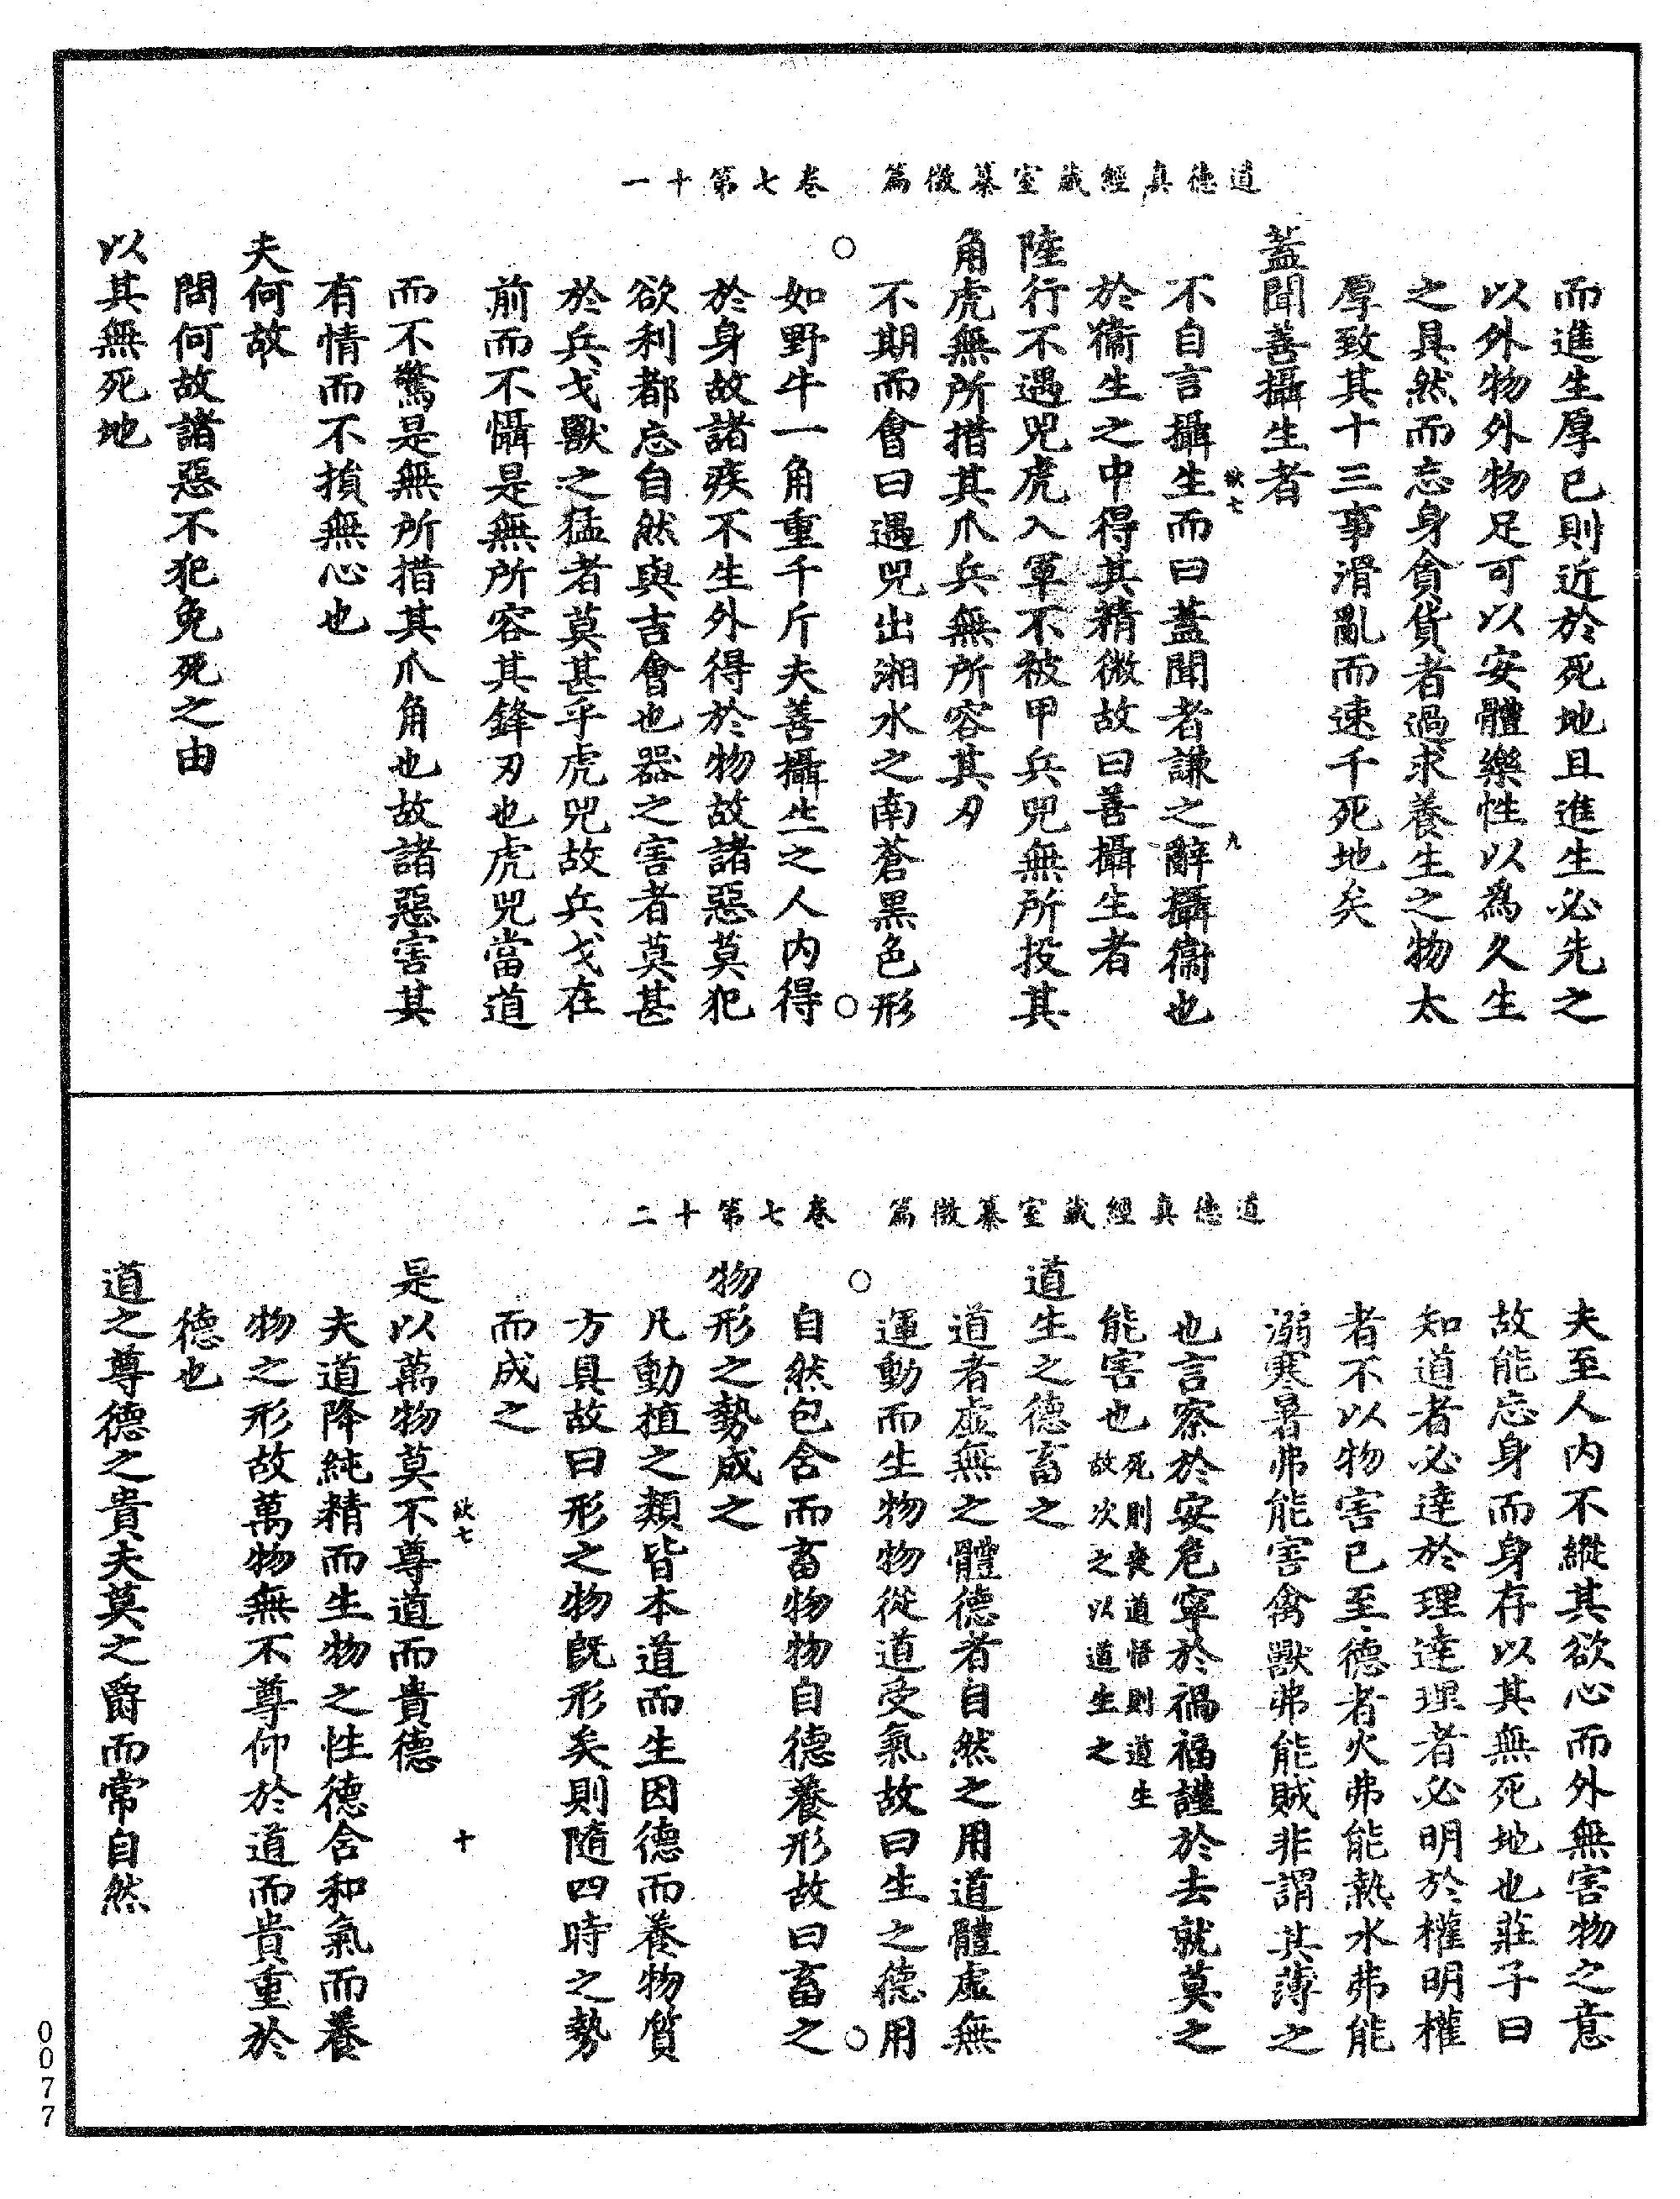 道德真經藏室纂微篇　卷七第十一
而進生厚已則近於死地且進生必先之
以外物外物足可以安體樂性以為久生
之具然而忘身貪貨者過求養生之物太
厚致其十三事滑亂而速千死地矣
蓋聞善攝生者
欲七
九
不自言攝生而曰蓋聞者謙之辭攝衛也
於衛生之中得其精微故曰善攝生者
陸行不遇兕虎入軍不被甲兵兕無所投其
角虎無所措其爪兵無所容其刃
不期而會曰遇兕出湘水之南蒼黑色形
如野牛一角重千斤夫善攝生之人内得
於身故諸疾不生外得於物故諸惡莫犯
欲利都忘自然與吉會也器之害者莫甚
於兵戈獸之猛者莫甚乎虎兕故兵戈在
前而不懾是無所容其鋒刃也虎兕當道
而不驚是無所措其爪角也故諸惡害其
有情而不損無心也
夫何故
問何故諸惡不犯免死之由
以其無死地
道德真經藏室纂微篇　卷七第十二
夫至人内不縱其欲心而外無害物之意
故能忘身而身存以其無死地也莊子曰
知道者必達於理達理者必明於權明權
者不以物害已至德者火弗能熱水弗能
溺寒暑弗能害禽獸弗能賊非謂其薄之
也言察於安危寧於禍福謹於去就莫之
能害也死則喪道悟則道生故次之以道生之
道生之德畜之
道者虛無之體德者自然之用道體虛無
運動而生物物從道受氣故曰生之德用
自然包含而畜物物自德養形故曰畜之
物形之勢成之
凡動植之類皆本道而生因德而養物質
方具故曰形之物既形矣則隨四時之勢
而成之
欲七
十
是以萬物莫不尊道而貴德
夫道降純精而生物之性德含和氣而養
物之形故萬物無不尊仰於道而貴重於
德也
道之尊德之貴夫莫之爵而常自然
0077